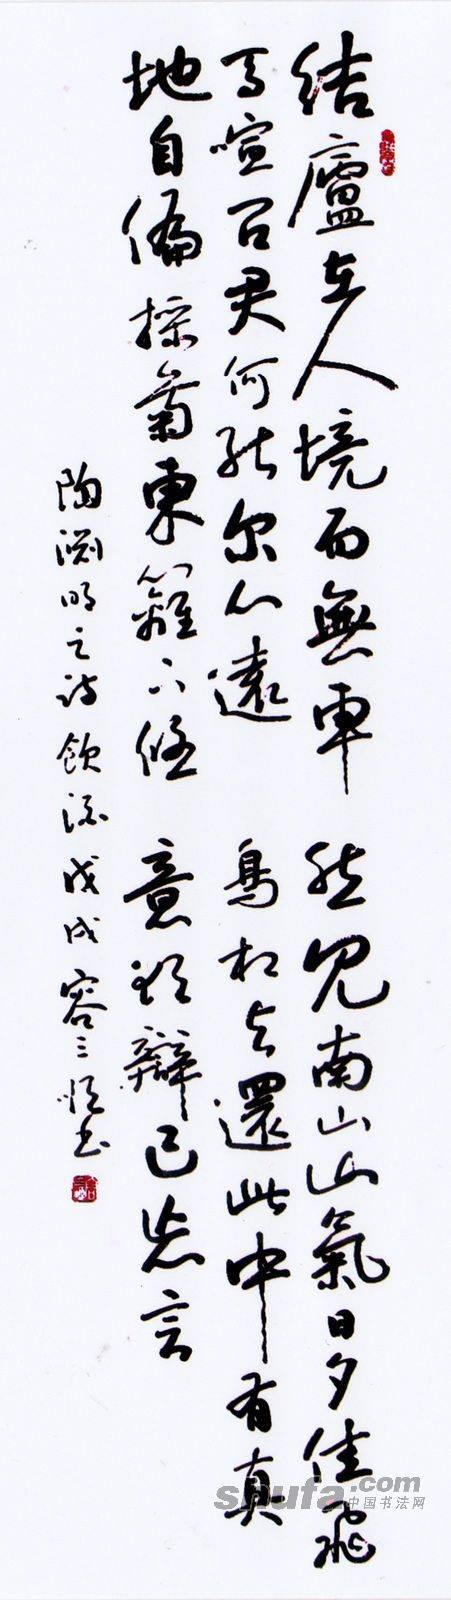 结廬在人境而無車
马喧问君何能尔心遠
地自偏採菊東籬下悠
然见南山山氣日夕佳飛
鳥相与還此中有真
意欲辯已忘言
陶渊明之诗飲酒戊戌容三书
shufa.com
中国书法网